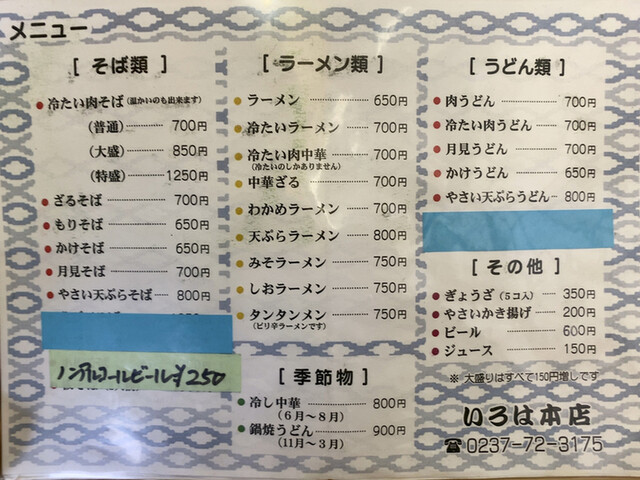 メニュー
[ そば類 ]
冷たい肉そば (温かいのも出来ます)
(普通) 700円
(大盛) 850円
(特盛) 1250円
ざるそば 700円
もりそば 650円
かけそば 650円
月見そば 700円
やさい天ぷらそば 800円
ノンアルコールビール ¥250
[ ラーメン類 ]
ラーメン 650円
冷たいラーメン 700円
冷たい肉中華 700円
(冷たいのしかありません)
中華ざる 700円
わかめラーメン 700円
天ぷらラーメン 800円
みそラーメン 750円
しおラーメン 750円
タンタンメン 750円
(ピリ辛ラーメンです)
[ 季節物 ]
冷し中華 800円
(6月〜8月)
鍋焼うどん 900円
(11月〜3月)
[ うどん類 ]
肉うどん 700円
冷たい肉うどん 700円
月見うどん 700円
かけうどん 650円
やさい天ぷらうどん 800円
[ その他 ]
ぎょうざ (5コ入) 350円
やさいかき揚げ 200円
ビール 600円
ジュース 150円
※ 大盛りはすべて150円増しです
いろは本店
☎0237-72-3175